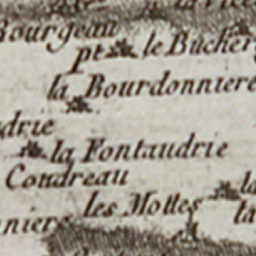 Bourgeau
pt le Bucher
la Bourdonniere
drie
la Fontaudrie
Coudreau
les Mottes
la
la
nniers